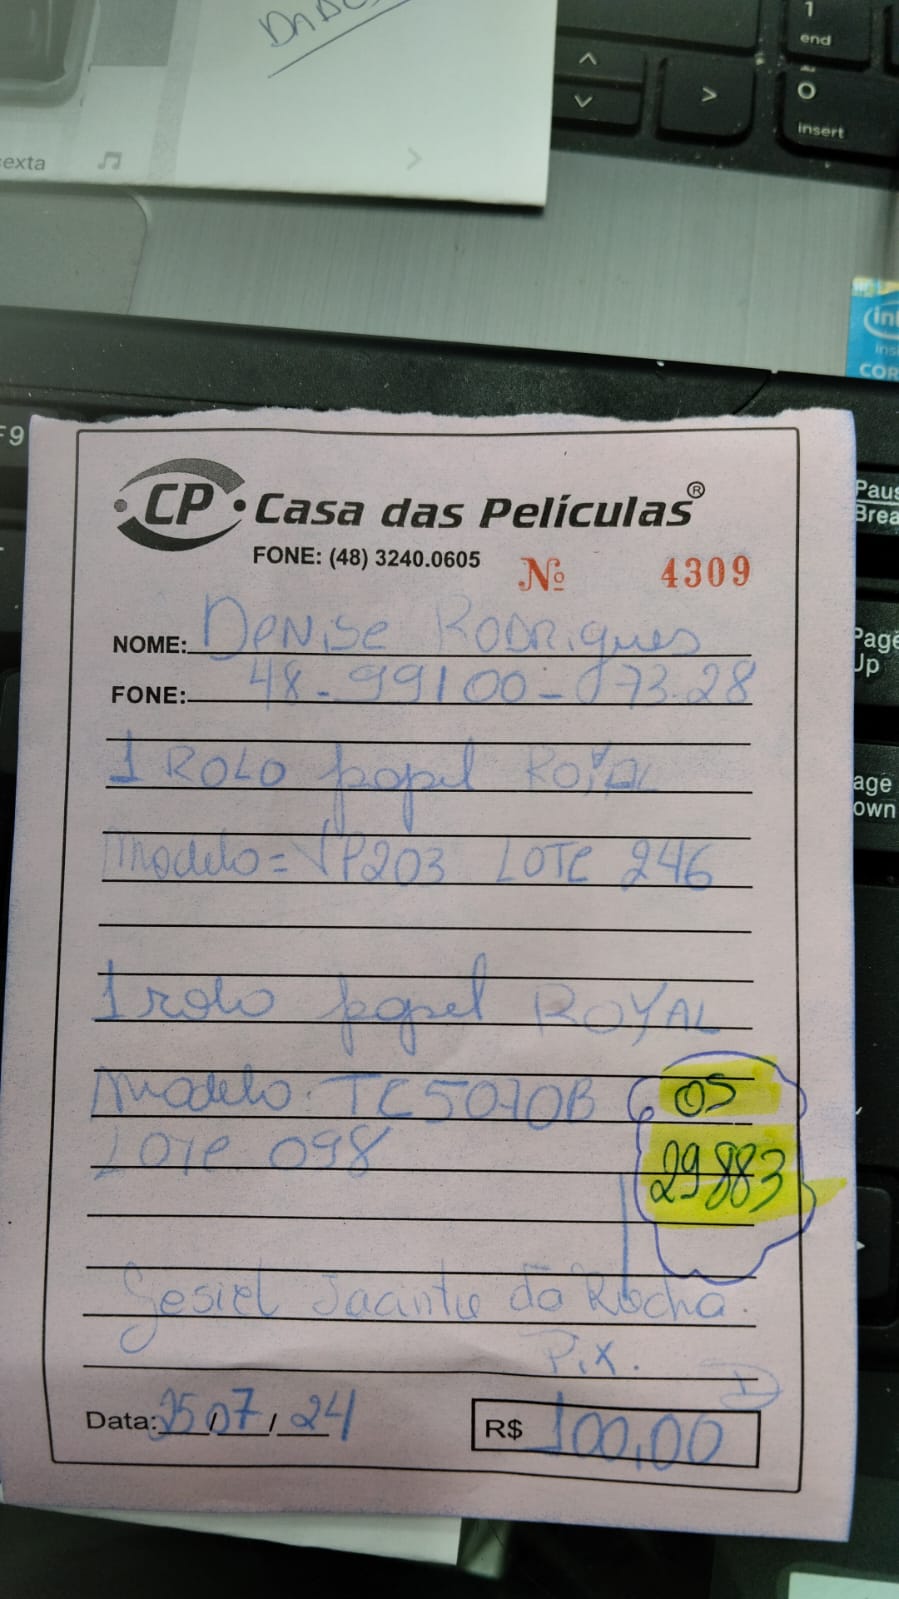 exta
1
end
0
insert
intel
insi
COR
F9
Paus
Brea
Page
Up
age
own
CP Casa das Películas®
FONE: (48) 3240.0605 Nº 4309
NOME: Denise Rodrigues
FONE: 48-99100-073-28
1 Rolo papel Royal
Modelo= VP203 LOTE 246
1 rolo papel ROYAL
Modelo: TC5070B
OS
Lote 098
29883
Gesiel Jacinto da Rocha.
Pix.
Data: 25/07/24 R$ 100,00